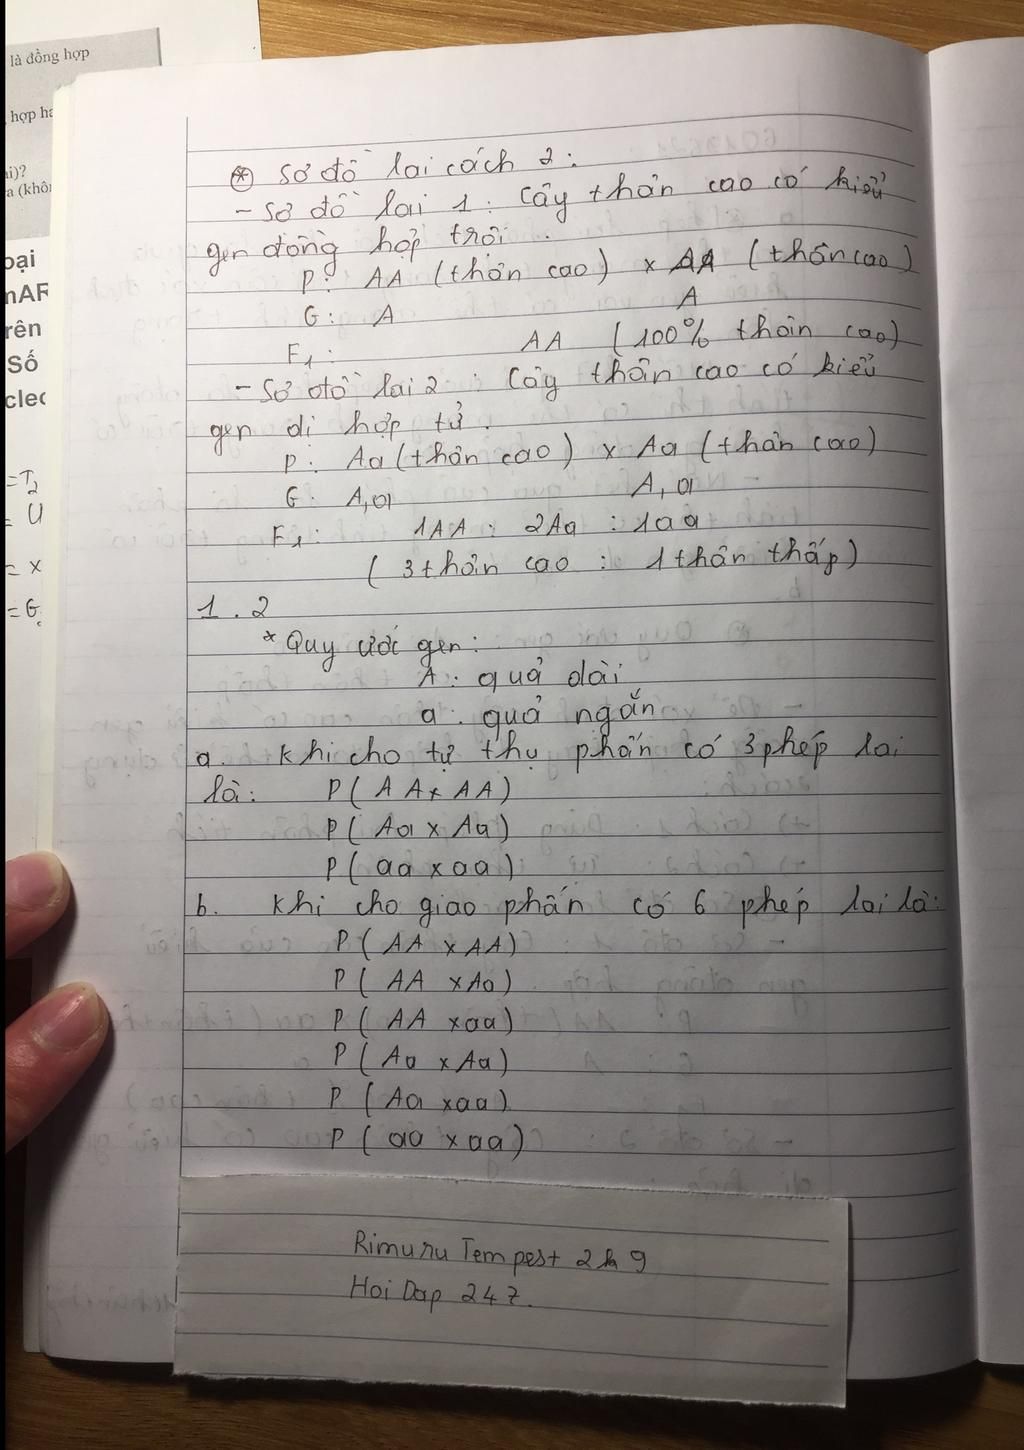 là đồng hợp
hợp
ại)?
a (khôn
oại
mAR
rên
Số
clec
= T2
= U
= x
= G
* Sơ đồ lai cách 2:
- Sơ đồ lai 1: Cây thân cao có kiểu
gen đồng hợp trội.
P: AA (thân cao) x AA (thân cao)
G: A A
F1: AA (100% thân cao)
- Sơ đồ lai 2: Cây thân cao có kiểu
gen dị hợp tử.
P: Aa (thân cao) x Aa (thân cao)
G: A,a A,a
F1: 1AA : 2Aa : 1aa
(3 thân cao : 1 thân thấp)
1.2
* Quy ước gen:
A: quả dài
a: quả ngắn
a. Khi cho tự thụ phấn có 3 phép lai
là: P(AA x AA)
P(Aa x Aa)
P(aa x aa)
b. Khi cho giao phấn có 6 phép lai là:
P(AA x AA)
P(AA x Aa)
P(AA x aa)
P(Aa x Aa)
P(Aa x aa)
P(aa x aa)
Rimuru Tempest 2k9
Hoi Dap 247.